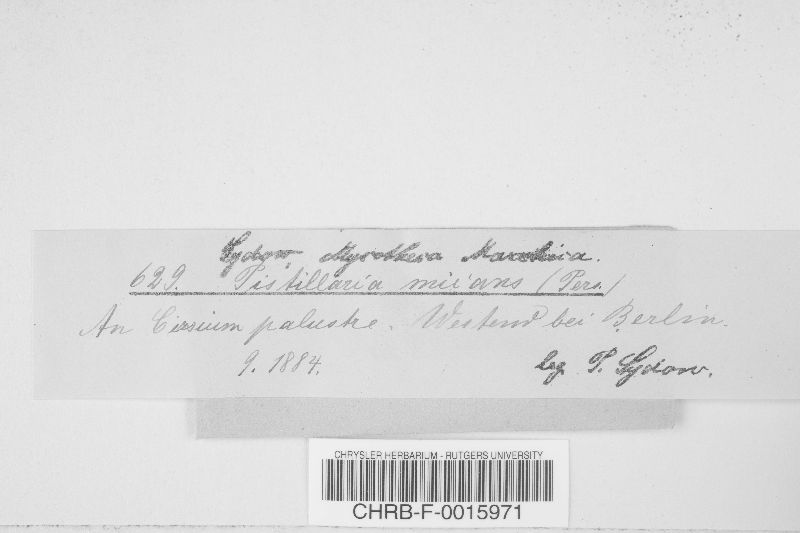 Sydow, Mycotheca Marchica.
629. Pistillaria micans (Pers.)
An Cirsium palustre. Westend bei Berlin.
9. 1884. leg. P. Sydow.
CHRYSLER HERBARIUM - RUTGERS UNIVERSITY
CHRB-F-0015971